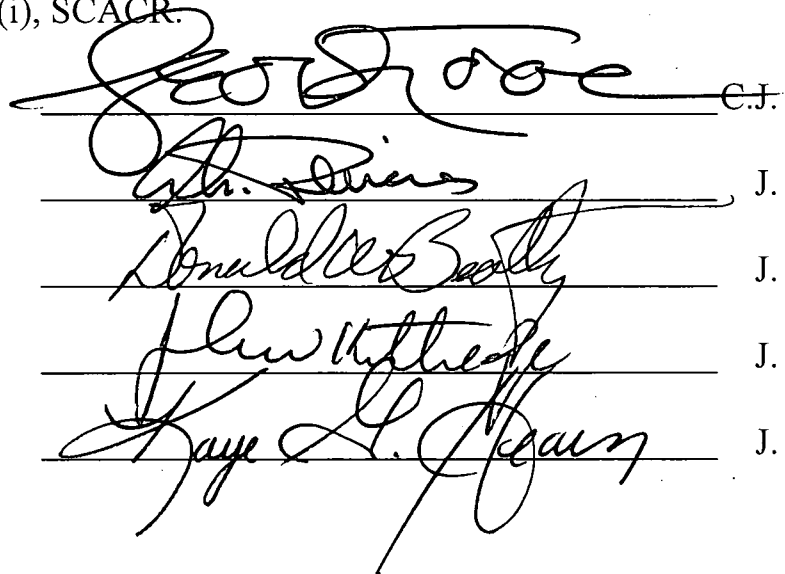 (i), SCACR.
C.J.
J.
Donald W. Beatty J.
John Kittredge J.
Kaye G. Hearn J.